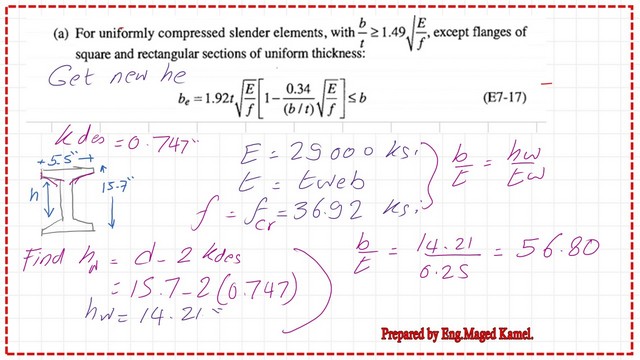 (a) For uniformly compressed slender elements, with b/t ≥ 1.49√(E/f), except flanges of
square and rectangular sections of uniform thickness:
Get new he
be = 1.92t√(E/f)[1 − 0.34/(b/t) √(E/f)] ≤ b (E7-17)
kdes = 0.747"
5.5"
15.7"
h
E = 29000 ksi
t = tweb
f = fcr = 36.92 ksi
b/t = hw/tw
Find hw = d - 2 kdes
= 15.7 - 2(0.747)
hw = 14.21"
b/t = 14.21/0.25 = 56.80
Prepared by Eng.Maged Kamel.